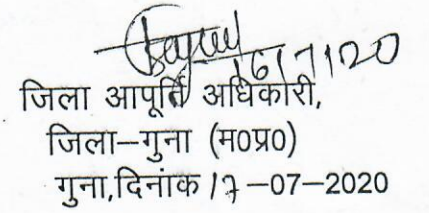 16/7/20
जिला आपूर्ति अधिकारी,
जिला–गुना (म0प्र0)
गुना,दिनांक 17 –07–2020